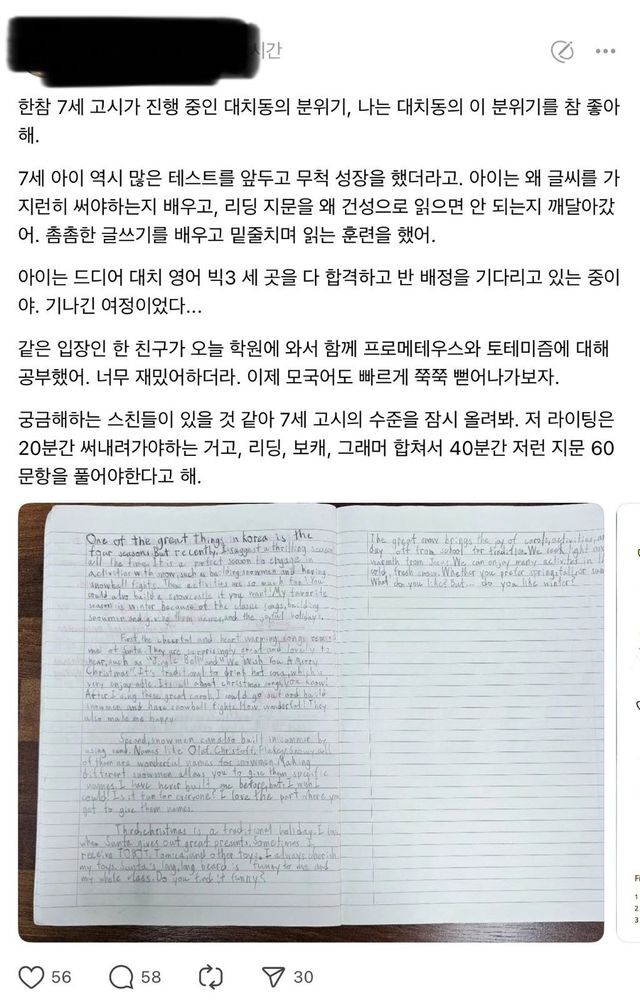 시간
한참 7세 고시가 진행 중인 대치동의 분위기, 나는 대치동의 이 분위기를 참 좋아
해.
7세 아이 역시 많은 테스트를 앞두고 무척 성장을 했더라고. 아이는 왜 글씨를 가
지런히 써야하는지 배우고, 리딩 지문을 왜 건성으로 읽으면 안 되는지 깨달아갔
어. 촘촘한 글쓰기를 배우고 밑줄치며 읽는 훈련을 했어.
아이는 드디어 대치 영어 빅3 세 곳을 다 합격하고 반 배정을 기다리고 있는 중이
야. 기나긴 여정이었다...
같은 입장인 한 친구가 오늘 학원에 와서 함께 프로메테우스와 토테미즘에 대해
공부했어. 너무 재밌어하더라. 이제 모국어도 빠르게 쭉쭉 뻗어나가보자.
궁금해하는 스친들이 있을 것 같아 7세 고시의 수준을 잠시 올려봐. 저 라이팅은
20분간 써내려가야하는 거고, 리딩, 보캐, 그래머 합쳐서 40분간 저런 지문 60
문항을 풀어야한다고 해.
One of the great things in korea is the
four seasons. But recently, I suggest a thrilling season
all the time. It is a perfect season to engage in
activities with snow, such as building snowmen and having
snowball fights. These activities are so much fun! You
could also build a snowcastle if you want! My favorite
season is winter because of the classic songs, building
snowmen and giving them names, and the joyful holidays.
First, the cheerful and heart warming songs remind
me of Santa. They are surprisingly great and lovely to
hear, such as "Jingle Bell" and "We Wish You A Merry
Christmas". It's traditional to drink hot coco, which is
very enjoyable. It's all about christmas songs, you know!
After I sing these great carols, I could go out and build
snowmen and have snowball fights. How wonderful! They
also make me happy.
Second, snowmen can also built in summer by
using sand. Names like Olaf, Christoff, Flakey, Snowy, all
of them are wonderful names for snowmen. Making
different snowmen allows you to give them specific
names. I have never built one before, but I wish I
could. Is it fun for everyone? I love the part where you
get to give them names.
Third, christmas is a traditional holiday. I love
when Santa gives out great presents. Sometimes, I
receive TOBOT, Tomica, and other toys. I always cherish
my toys. Santa's long, long beard is funny to me and
my whole class. Do you find it funny?
The great snow brings the joy of carols, activities, and
day off from school for tradition. We seek light and
warmth from We can enjoy many activities in the
cold, fresh snow. Whether you prefer spring, fall, or summer
What do you like? But... do you like winter?
56
58
30
1
2
3